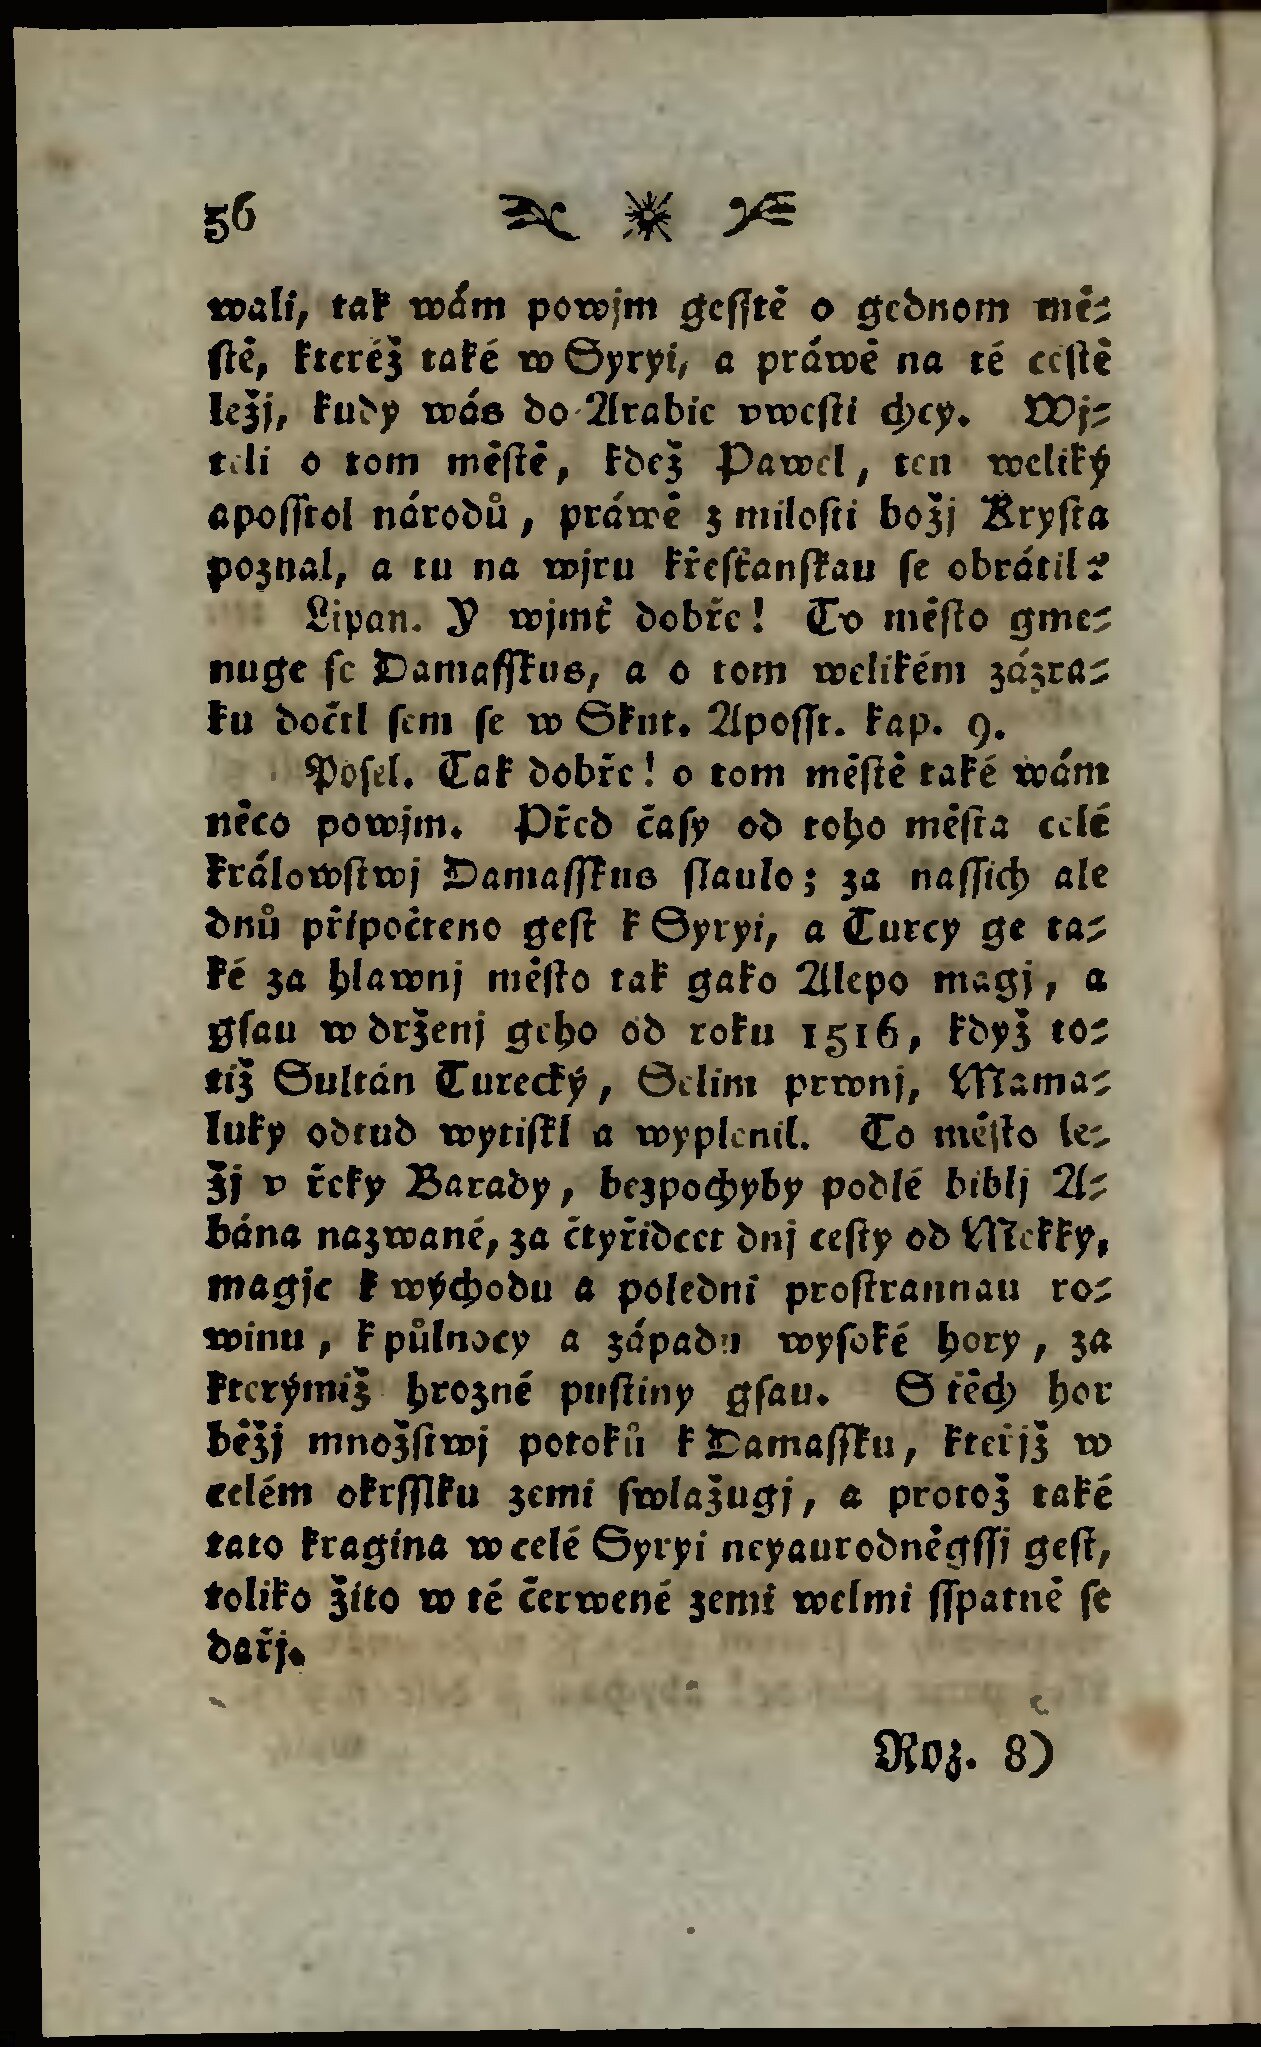 56
wali, tak wám powjm gesstě o gednom mě-
stě, kteréž také w Syryi, a práwě na té cestě
ležj, kudy wás do Arabie vwesti chcy. Wj-
teli o tom městě, kdež Pawel, ten weliký
aposstol národů, práwě z milosti božj Krysta
poznal, a tu na wjru křesťanskau se obrátil?
Lipan. Y wjmť dobře! To město gme-
nuge se Damasskus, a o tom welikém zázra-
ku dočtl sem se w Skut. Aposst. kap. 9.
Posel. Tak dobře! o tom městě také wám
něco powjm. Před časy od toho města celé
králowstwj Damasskus slaulo; za nassich ale
dnů připočteno gest k Syryi, a Turcy ge ta-
ké za hlawnj město tak gako Alepo magj, a
gsau w drženj geho od roku 1516, když to-
tiž Sultán Turecký, Selim prwnj, Mama-
luky odtud wytiskl a wyplenil. To město le-
žj v řeky Barady, bezpochyby podlé biblj A-
bána nazwané, za čtyřidcet dnj cesty od Mekky,
magjc k wýchodu a poledni prostrannau ro-
winu, k půlnocy a západu wysoké hory, za
kterýmiž hrozné pustiny gsau. S těch hor
běžj množstwj potoků k Damassku, kteřjž w
celém okrsslku zemi swlažugj, a protož také
tato kragina w celé Syryi neyaurodněgssj gest,
toliko žito w té čerwené zemi welmi sspatně se
dařj.
Roz. 8)